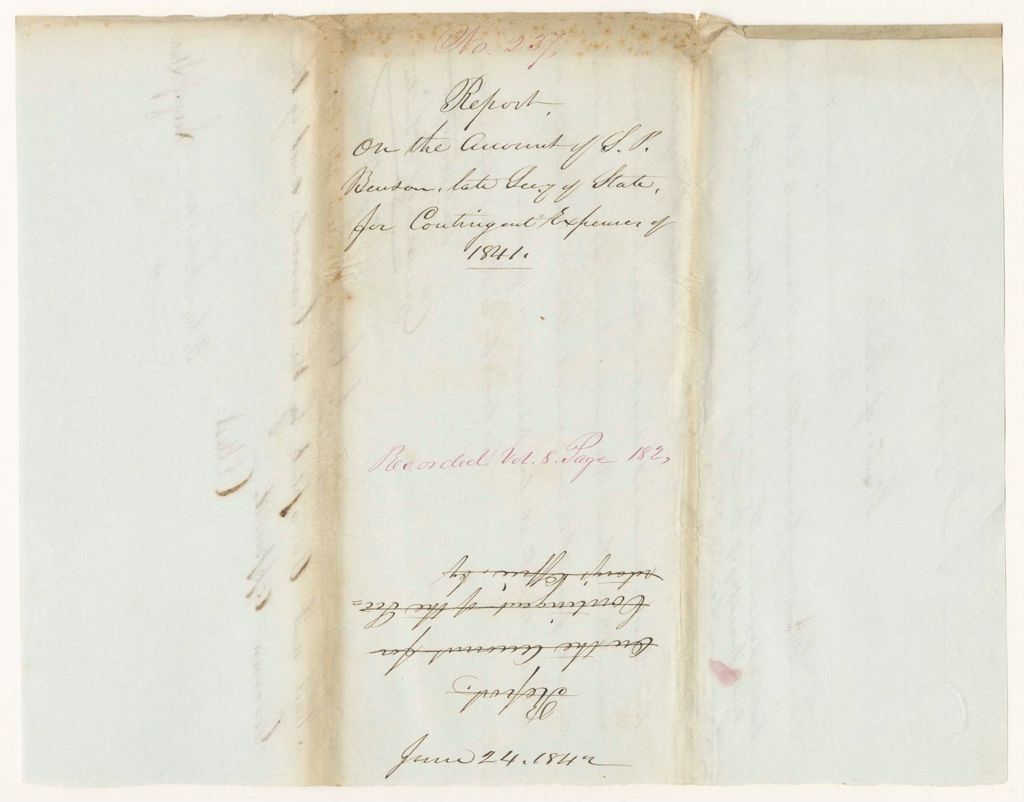 No. 237
Report
On the Account of S. P.
Benson, late Secy of State,
for Contingent Expenses of
1841.
Recorded Vol. 8. Page 182,
Report.
On the Account for
Contingent of the Sec=
retary's Office, by
June 24. 1842